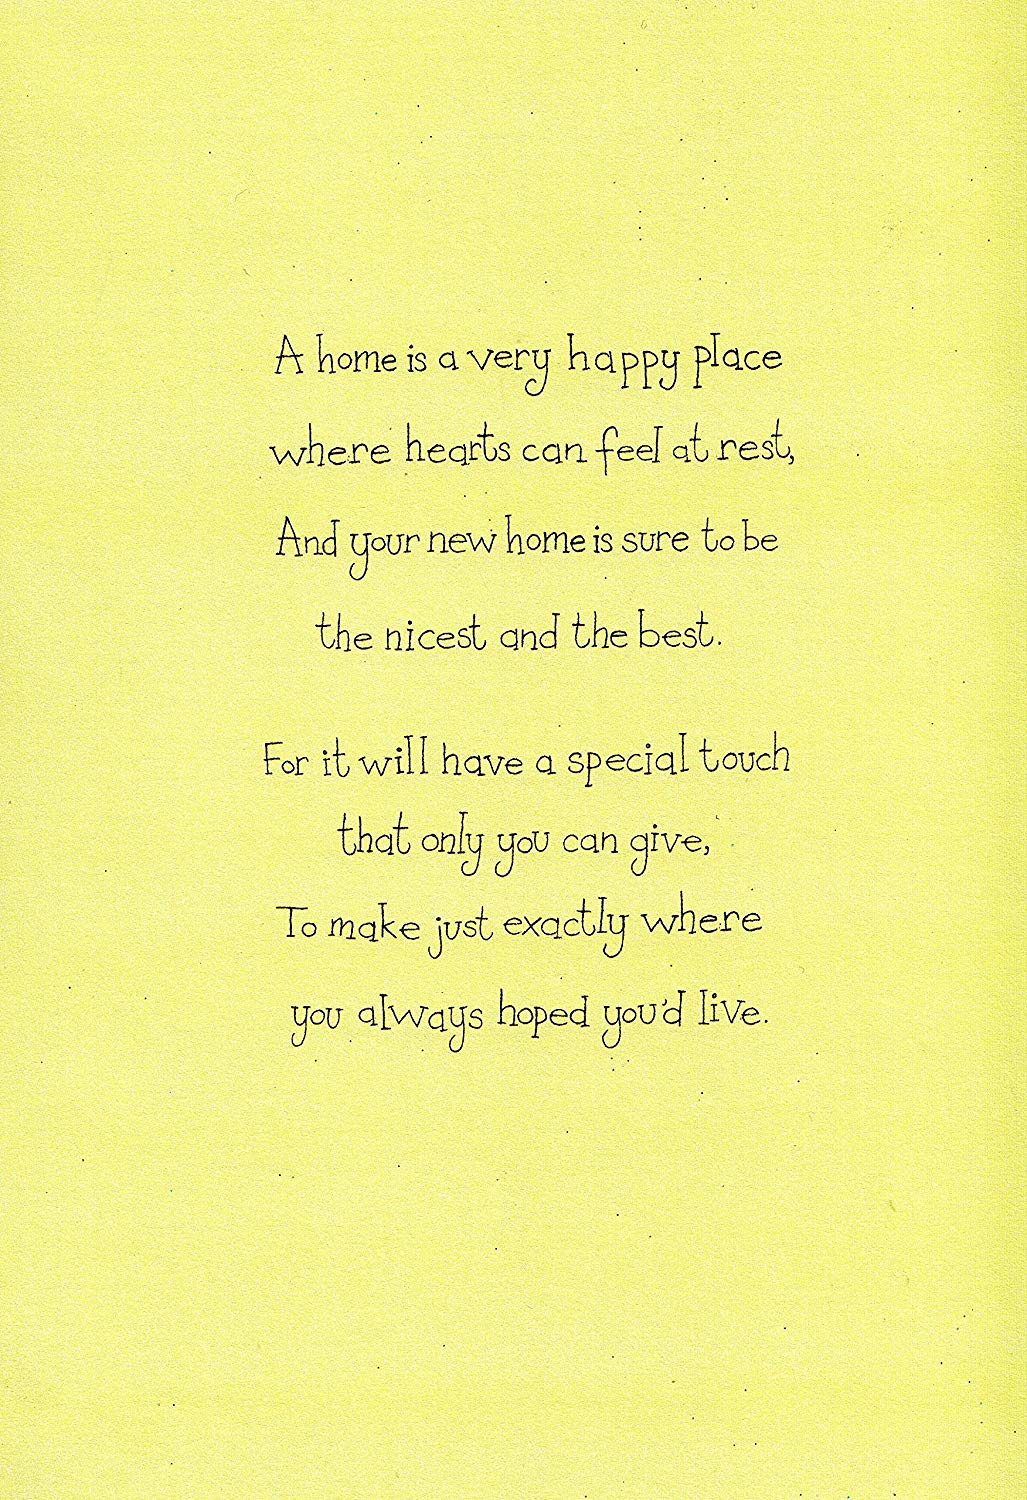 A home is a very happy place
where hearts can feel at rest,
And your new home is sure to be
the nicest and the best.
For it will have a special touch
that only you can give,
To make just exactly where
you always hoped you'd live.